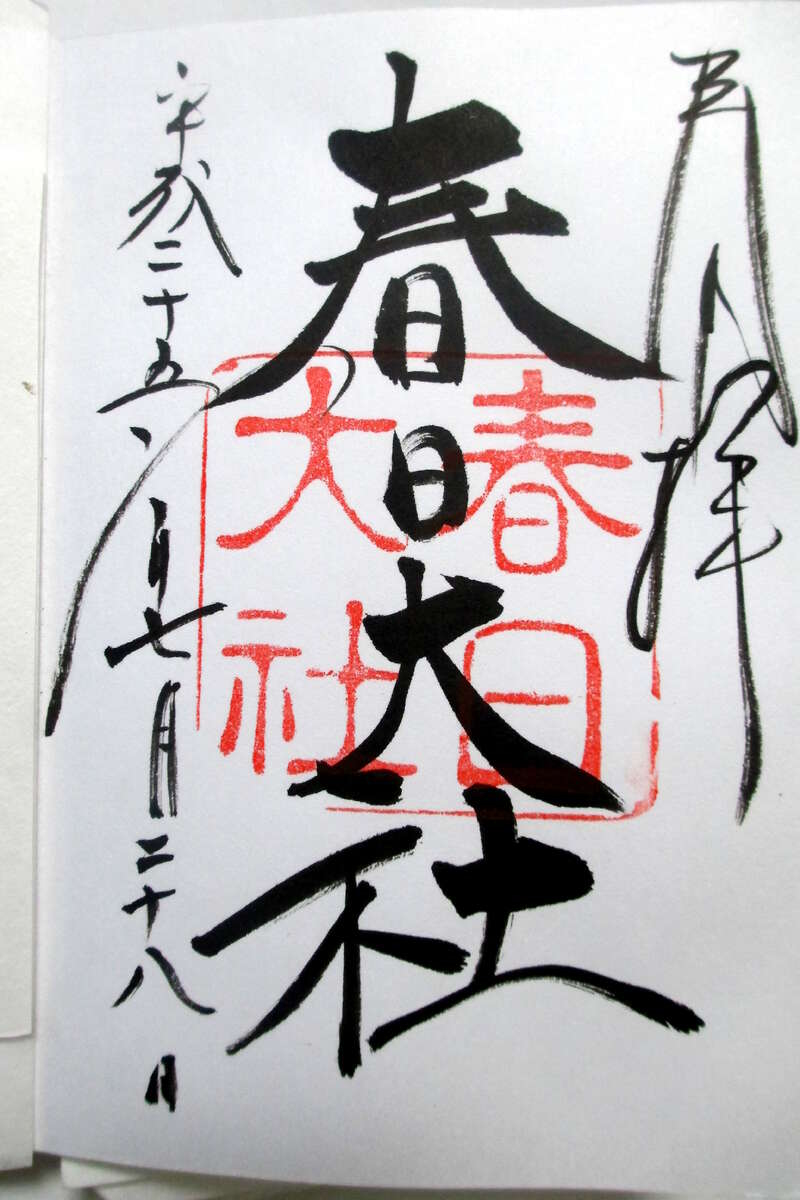 奉拝
春日大社
春日
大社
平成二十五年七月二十八日